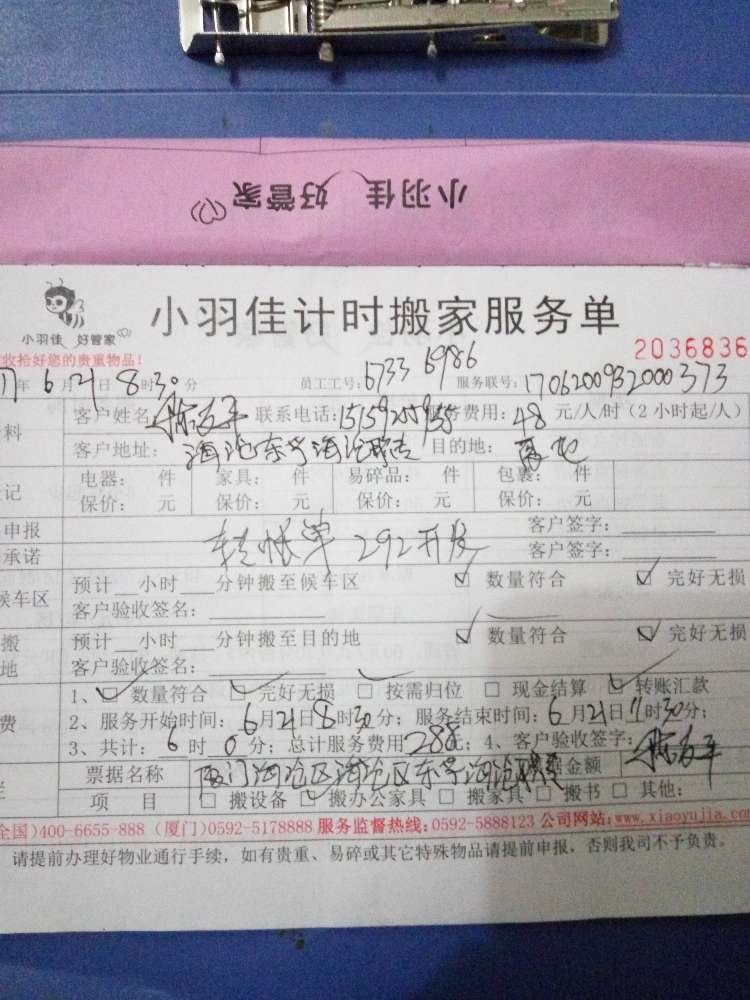 小羽佳 好管家
小羽佳 好管家
小羽佳计时搬家服务单
收拾好您的贵重物品!
2036836
17年6月21日8时30分 员工工号:6733 6986 服务联号:1706200932000373
料 客户姓名: 联系电话: 务费用:48元/人/时(2小时起/人)
客户地址: 目的地:
记 电器: 件 家具: 件 易碎品: 件 包裹: 件
保价: 元 保价: 元 保价: 元 保价: 元
申报 转帐单 292开发 客户签字:
承诺 客户签字:
候车区 预计 小时 分钟搬至候车区 ☑ 数量符合 ☑ 完好无损
客户验收签名:
搬 预计 小时 分钟搬至目的地 ☑ 数量符合 ☑ 完好无损
地 客户验收签名:
1、☑ 数量符合 ☑ 完好无损 □ 按需归位 □ 现金结算 ☑ 转账汇款
费 2、服务开始时间:6月21日8时30分; 服务结束时间:6月21日11时30分;
3、共计:6时0分; 总计服务费用288; 4、客户验收签字:
票据名称 金额
项 目 □ 搬设备 ☑ 搬办公家具 □ 搬家具 □ 搬书 □ 其他:
全国)400-6655-888 (厦门)0592-5178888 服务监督热线:0592-5888123 公司网站:www.xiaoyujia.com
请提前办理好物业通行手续,如有贵重、易碎或其它特殊物品请提前申报,否则我司不予负责。